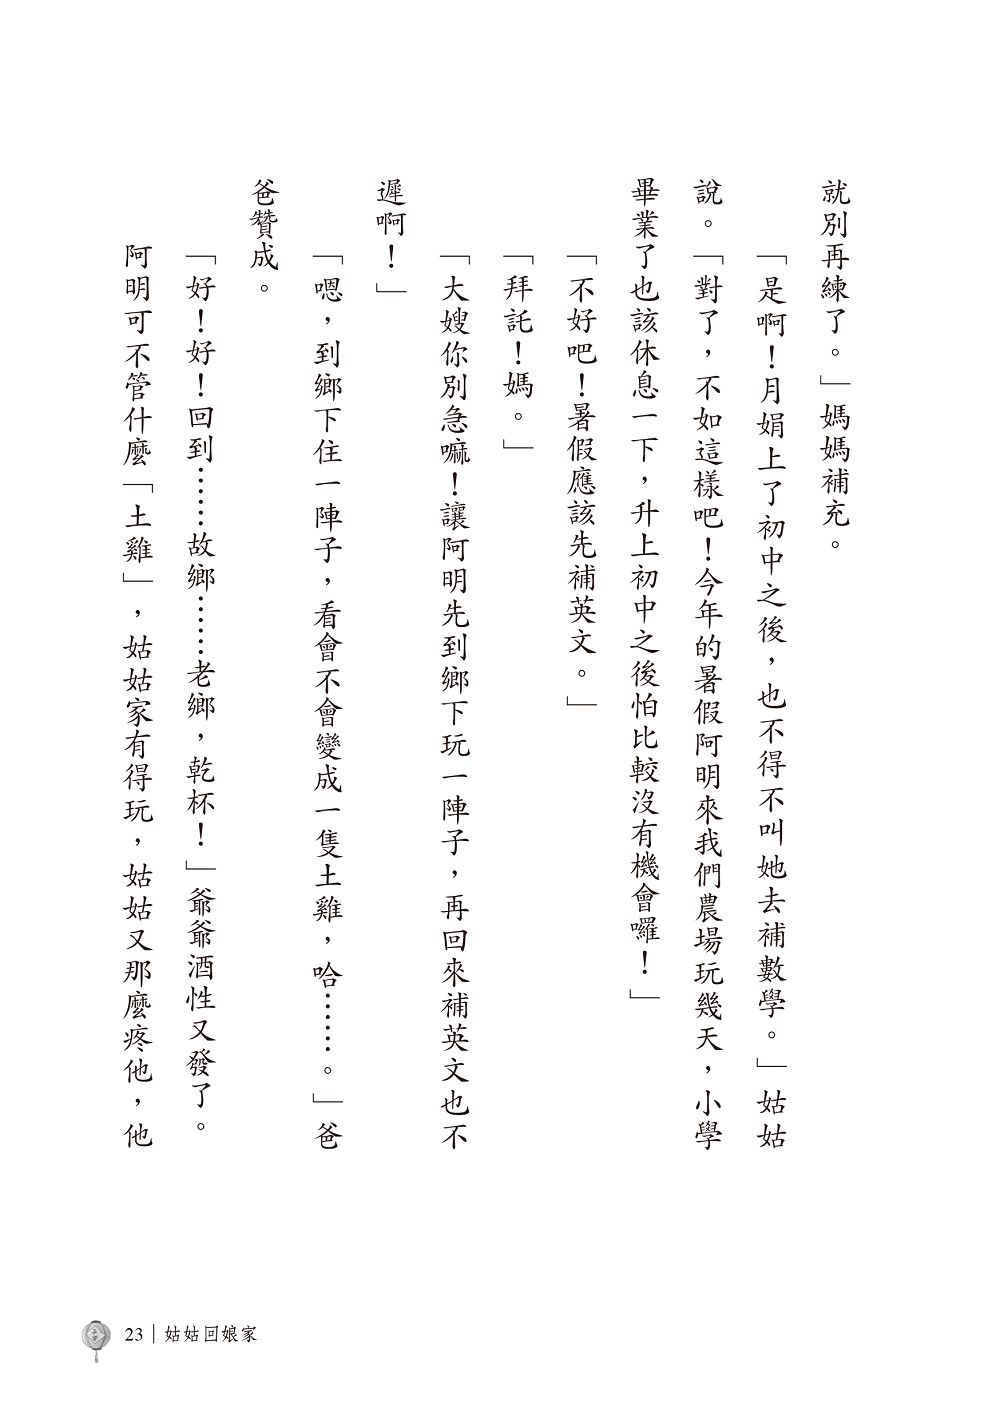 就別再練了。」媽媽補充。
「是啊！月娟上了初中之後，也不得不叫她去補數學。」姑姑
說。「對了，不如這樣吧！今年的暑假阿明來我們農場玩幾天，小學
畢業了也該休息一下，升上初中之後怕比較沒有機會囉！」
「不好吧！暑假應該先補英文。」
「拜託！媽。」
「大嫂你別急嘛！讓阿明先到鄉下玩一陣子，再回來補英文也不
遲啊！」
「嗯，到鄉下住一陣子，看會不會變成一隻土雞，哈……。」爸
爸贊成。
「好！好！回到……故鄉……老鄉，乾杯！」爺爺酒性又發了。
阿明可不管什麼「土雞」，姑姑家有得玩，姑姑又那麼疼他，他
23｜姑姑回娘家